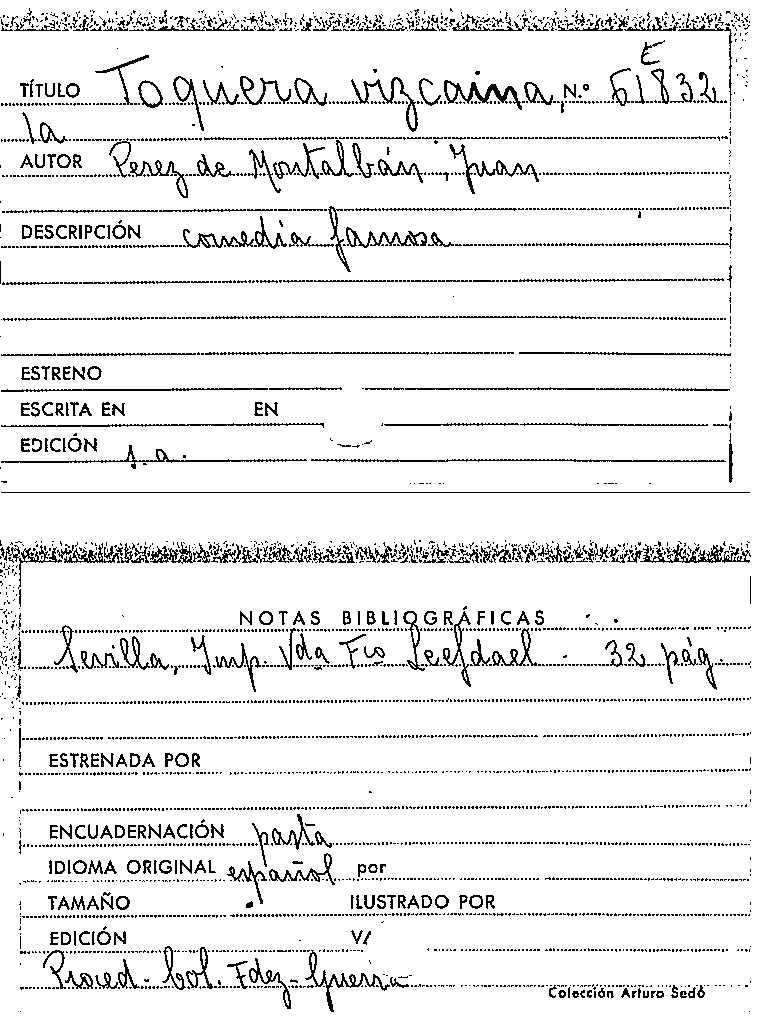 E
TÍTULO Toquera vizcaina, N.º 61832
la
AUTOR Perez de Montalbán, Juan
DESCRIPCIÓN comedia famosa
ESTRENO
ESCRITA EN EN
EDICIÓN s. a.
NOTAS BIBLIOGRÁFICAS
Sevilla, Imp. Vda Fco Leefdael - 32 pág.
ESTRENADA POR
ENCUADERNACIÓN pasta
IDIOMA ORIGINAL español por
TAMAÑO ILUSTRADO POR
EDICIÓN V/
Proced - Col. Fdez - Guerra
Colección Arturo Sedó